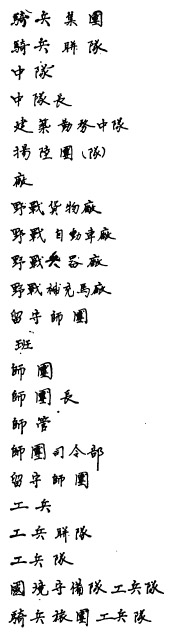 騎兵集團
騎兵聯隊
中隊
中隊長
建築勤務中隊
揚陸團(隊)
廠
野戰貨物廠
野戰自動車廠
野戰兵器廠
野戰補充馬廠
留守師團
班
師團
師團長
師管
師團司令部
留守師團
工兵
工兵聯隊
工兵隊
國境守備隊工兵隊
騎兵旅團工兵隊